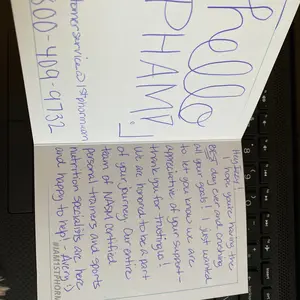 hello
PHAMD!
stomerservice@1stphorm.com
800-409-9732
Hey Jeez!
I hope you're having the
BEST day ever and crushing
all your goals! I just wanted
to let you know we are
appreciative of your support -
thank you for trusting us!
We are honored to be a part
of your journey. Our entire
team of NASM certified
personal trainers and sports
nutrition specialists are here
and happy to help! Avery :)
#IAM1STPHORM